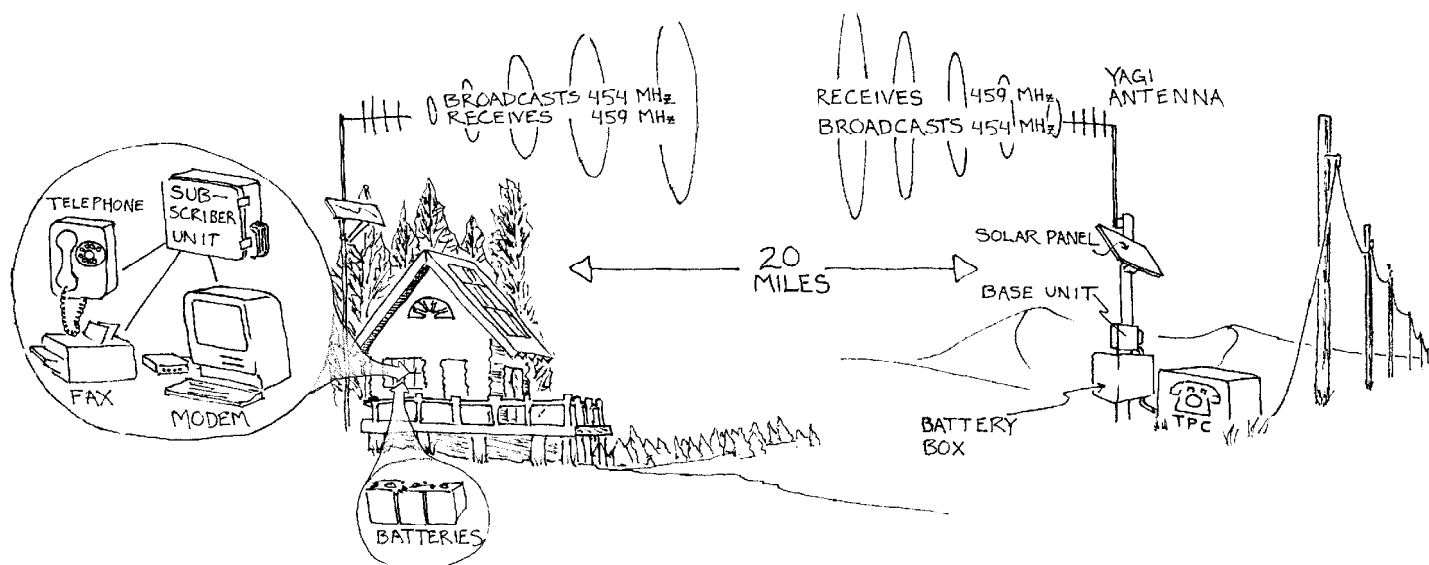 BROADCASTS 454 MHz
RECEIVES 459 MHz
RECEIVES 459 MHz
BROADCASTS 454 MHz
YAGI
ANTENNA
TELEPHONE
SUB-
SCRIBER
UNIT
FAX
MODEM
BATTERIES
20
MILES
SOLAR PANEL
BASE UNIT
BATTERY
BOX
TPC